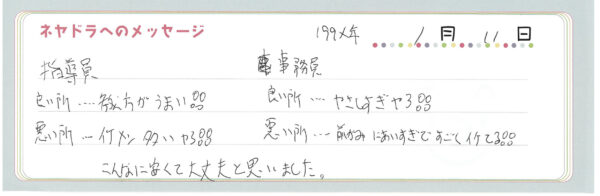 ネヤドラへのメッセージ
199X年 1月 11日
指導員
事務員
良い所…教え方がうまい
良い所…やさしすぎやろ
悪い所…イケメン多いやろ
悪い所…前がみにあいすぎてすごくイケてる
こんなに安くて大丈夫と思いました。